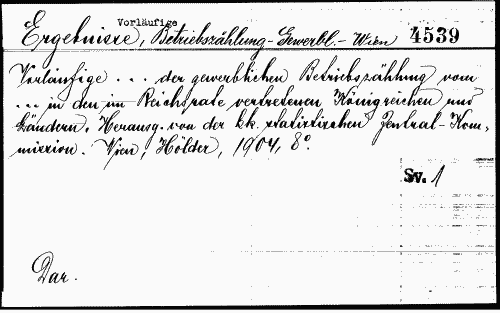 Vorläufige
Ergebnisse, Betriebszählung-Gewerbl.- Wien 4539
Vorläufige ... der gewerblichen Betriebszählung vom
... in den im Reichsrate vertretenen Königreichen und
Ländern. Herausg. von der kk. statistischen Zentral-Kom-
mission. Wien, Hölder, 1904, 8°.
Sv. 1
Dar.